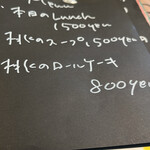 本日のLunch
1500yen
秋のスープ 1500yen
秋のロールケーキ
800yen